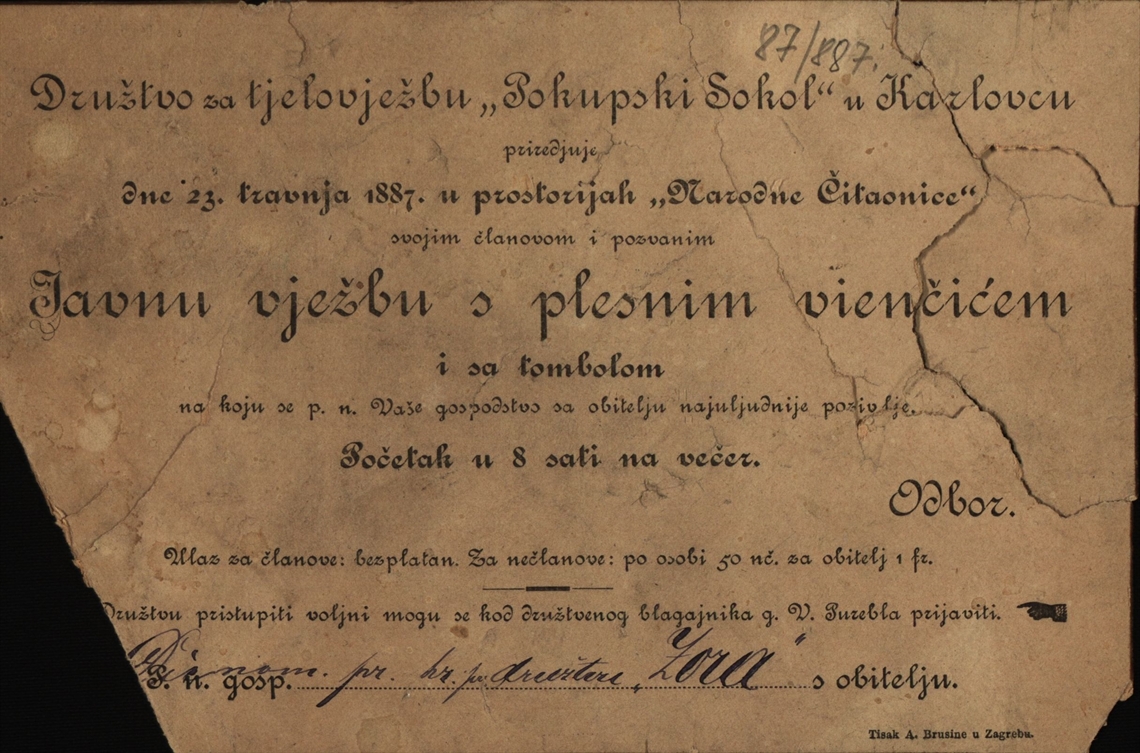 87/887.
Družtvo za tjelovježbu „Pokupski Sokol“ u Karlovcu
priredjuje
dne 23. travnja 1887. u prostorijah „Narodne Čitaonice“
svojim članovom i pozvanim
Javnu vježbu s plesnim vienčićem
i sa tombolom
na koju se p. n. Vaše gospodstvo sa obitelju najuljudnije pozivlje.
Početak u 8 sati na večer.
Odbor.
Ulaz za članove: bezplatan. Za nečlanove: po osobi 50 nč. za obitelj 1 fr.
Družtvu pristupiti voljni mogu se kod družtvenog blagajnika g. V. Purebla prijaviti.
P. n. gosp. pr. hr. pj. družtva „Zora“ s obitelju.
Tisak A. Brusine u Zagrebu.